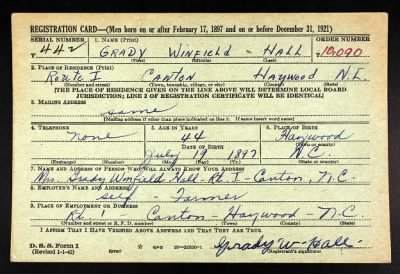 REGISTRATION CARD—(Men born on or after February 17, 1897 and on or before December 31, 1921)
SERIAL NUMBER 1. NAME (Print) ORDER NUMBER
442 GRADY WINFIELD - HALL 10,090
(First) (Middle) (Last)
2. PLACE OF RESIDENCE (Print)
Route 1 CANTON Haywood N.C.
(Number and street) (Town, township, village, or city) (County) (State)
[THE PLACE OF RESIDENCE GIVEN ON THE LINE ABOVE WILL DETERMINE LOCAL BOARD
JURISDICTION; LINE 2 OF REGISTRATION CERTIFICATE WILL BE IDENTICAL]
3. MAILING ADDRESS
same
[Mailing address if other than place indicated on line 2. If same insert word same]
4. TELEPHONE 5. AGE IN YEARS 6. PLACE OF BIRTH
none 44 Haywood
DATE OF BIRTH (Town or county)
July 19 1897 N.C.
(Exchange) (Number) (Mo.) (Day) (Yr.) (State or country)
7. NAME AND ADDRESS OF PERSON WHO WILL ALWAYS KNOW YOUR ADDRESS
Mrs. Grady Winfield Hall - Rt. 1 - Canton, N.C.
8. EMPLOYER'S NAME AND ADDRESS
self - Farmer
9. PLACE OF EMPLOYMENT OR BUSINESS
Rt. 1 Canton - Haywood - N.C.
(Number and street or R. F. D. number) (Town) (County) (State)
I AFFIRM THAT I HAVE VERIFIED ABOVE ANSWERS AND THAT THEY ARE TRUE.
D. S. S. Form 1
(Revised 1-1-42) (over) GPO 16—21630-1 Grady W. Hall